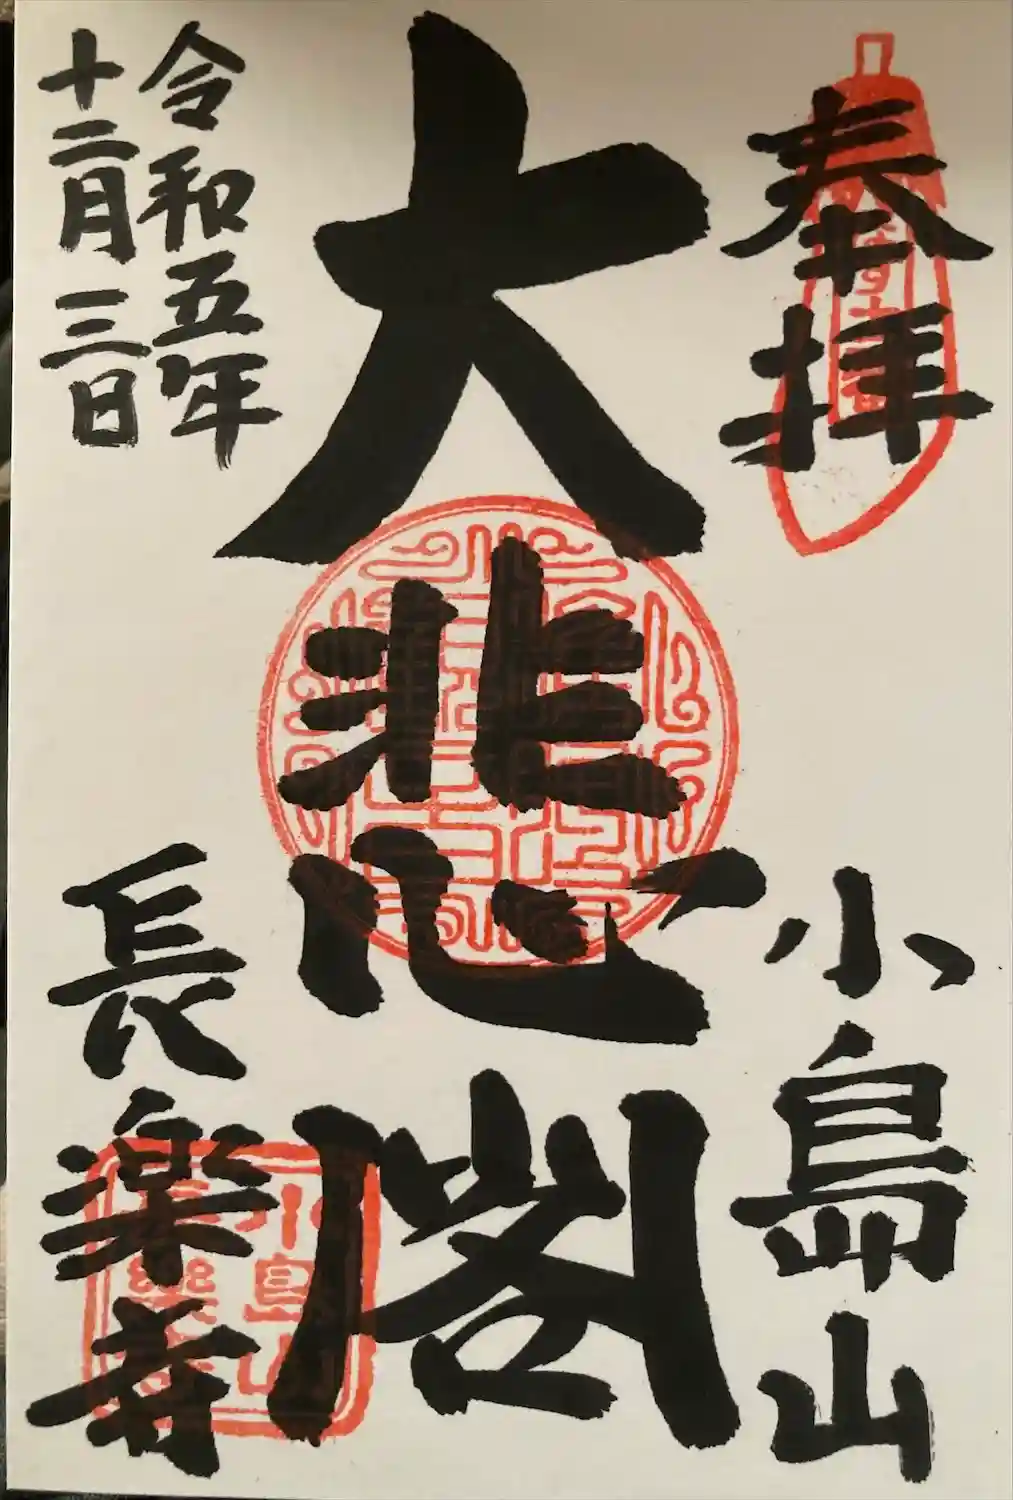 奉拝
小嶌山
大悲閣
令和五年
十二月三日
長楽寺
小島山